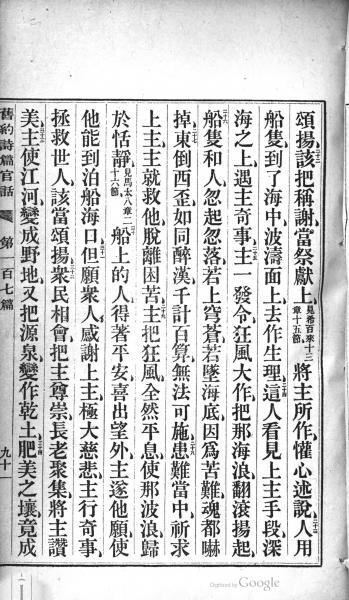 頌揚該把稱謝當祭獻上見希百來十三章十五節將主所作懽心述說人用
船隻到了海中波濤面上去作生理這人看見上主手段深
海之上遇主奇事主一發令狂風大作把那海浪翻滾揚起
船隻和人忽起忽落若上穹蒼若墜海底因爲苦難魂都嚇
掉東倒西歪如同醉漢千計百算無法可施患難當中祈求
上主主就救他脫離困苦主把狂風全然平息使那波浪歸
於恬靜見馬太八章二十六節船上的人得著平安喜出望外主遂他願使
他能到泊船海口但願衆人感謝上主極大慈悲主行奇事
拯救世人該當頌揚衆民相會把主尊崇長老聚集將主讚
美主使江河變成野地又把源泉變作乾土肥美之壤竟成
舊約詩篇官話 第一百七篇 九十一
Digitized by Google